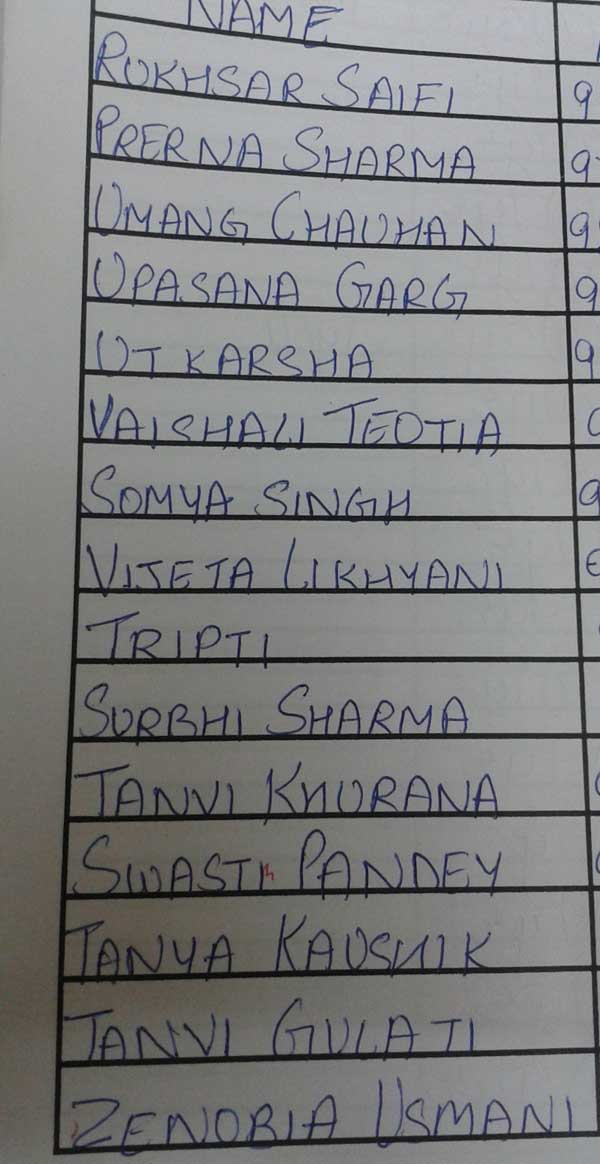 NAME
ROKHSAR SAIFI 9
PRERNA SHARMA 9
UMANG CHAUHAN 9
UPASANA GARG 9
UTKARSHA 9
VAISHALI TEOTIA
SOMYA SINGH 9
VIJETA LIKHYANI
TRIPTI
SURBHI SHARMA
TANVI KHURANA
SWASTI PANDEY
TANYA KAUSHIK
TANVI GULATI
ZENOBIA USMANI